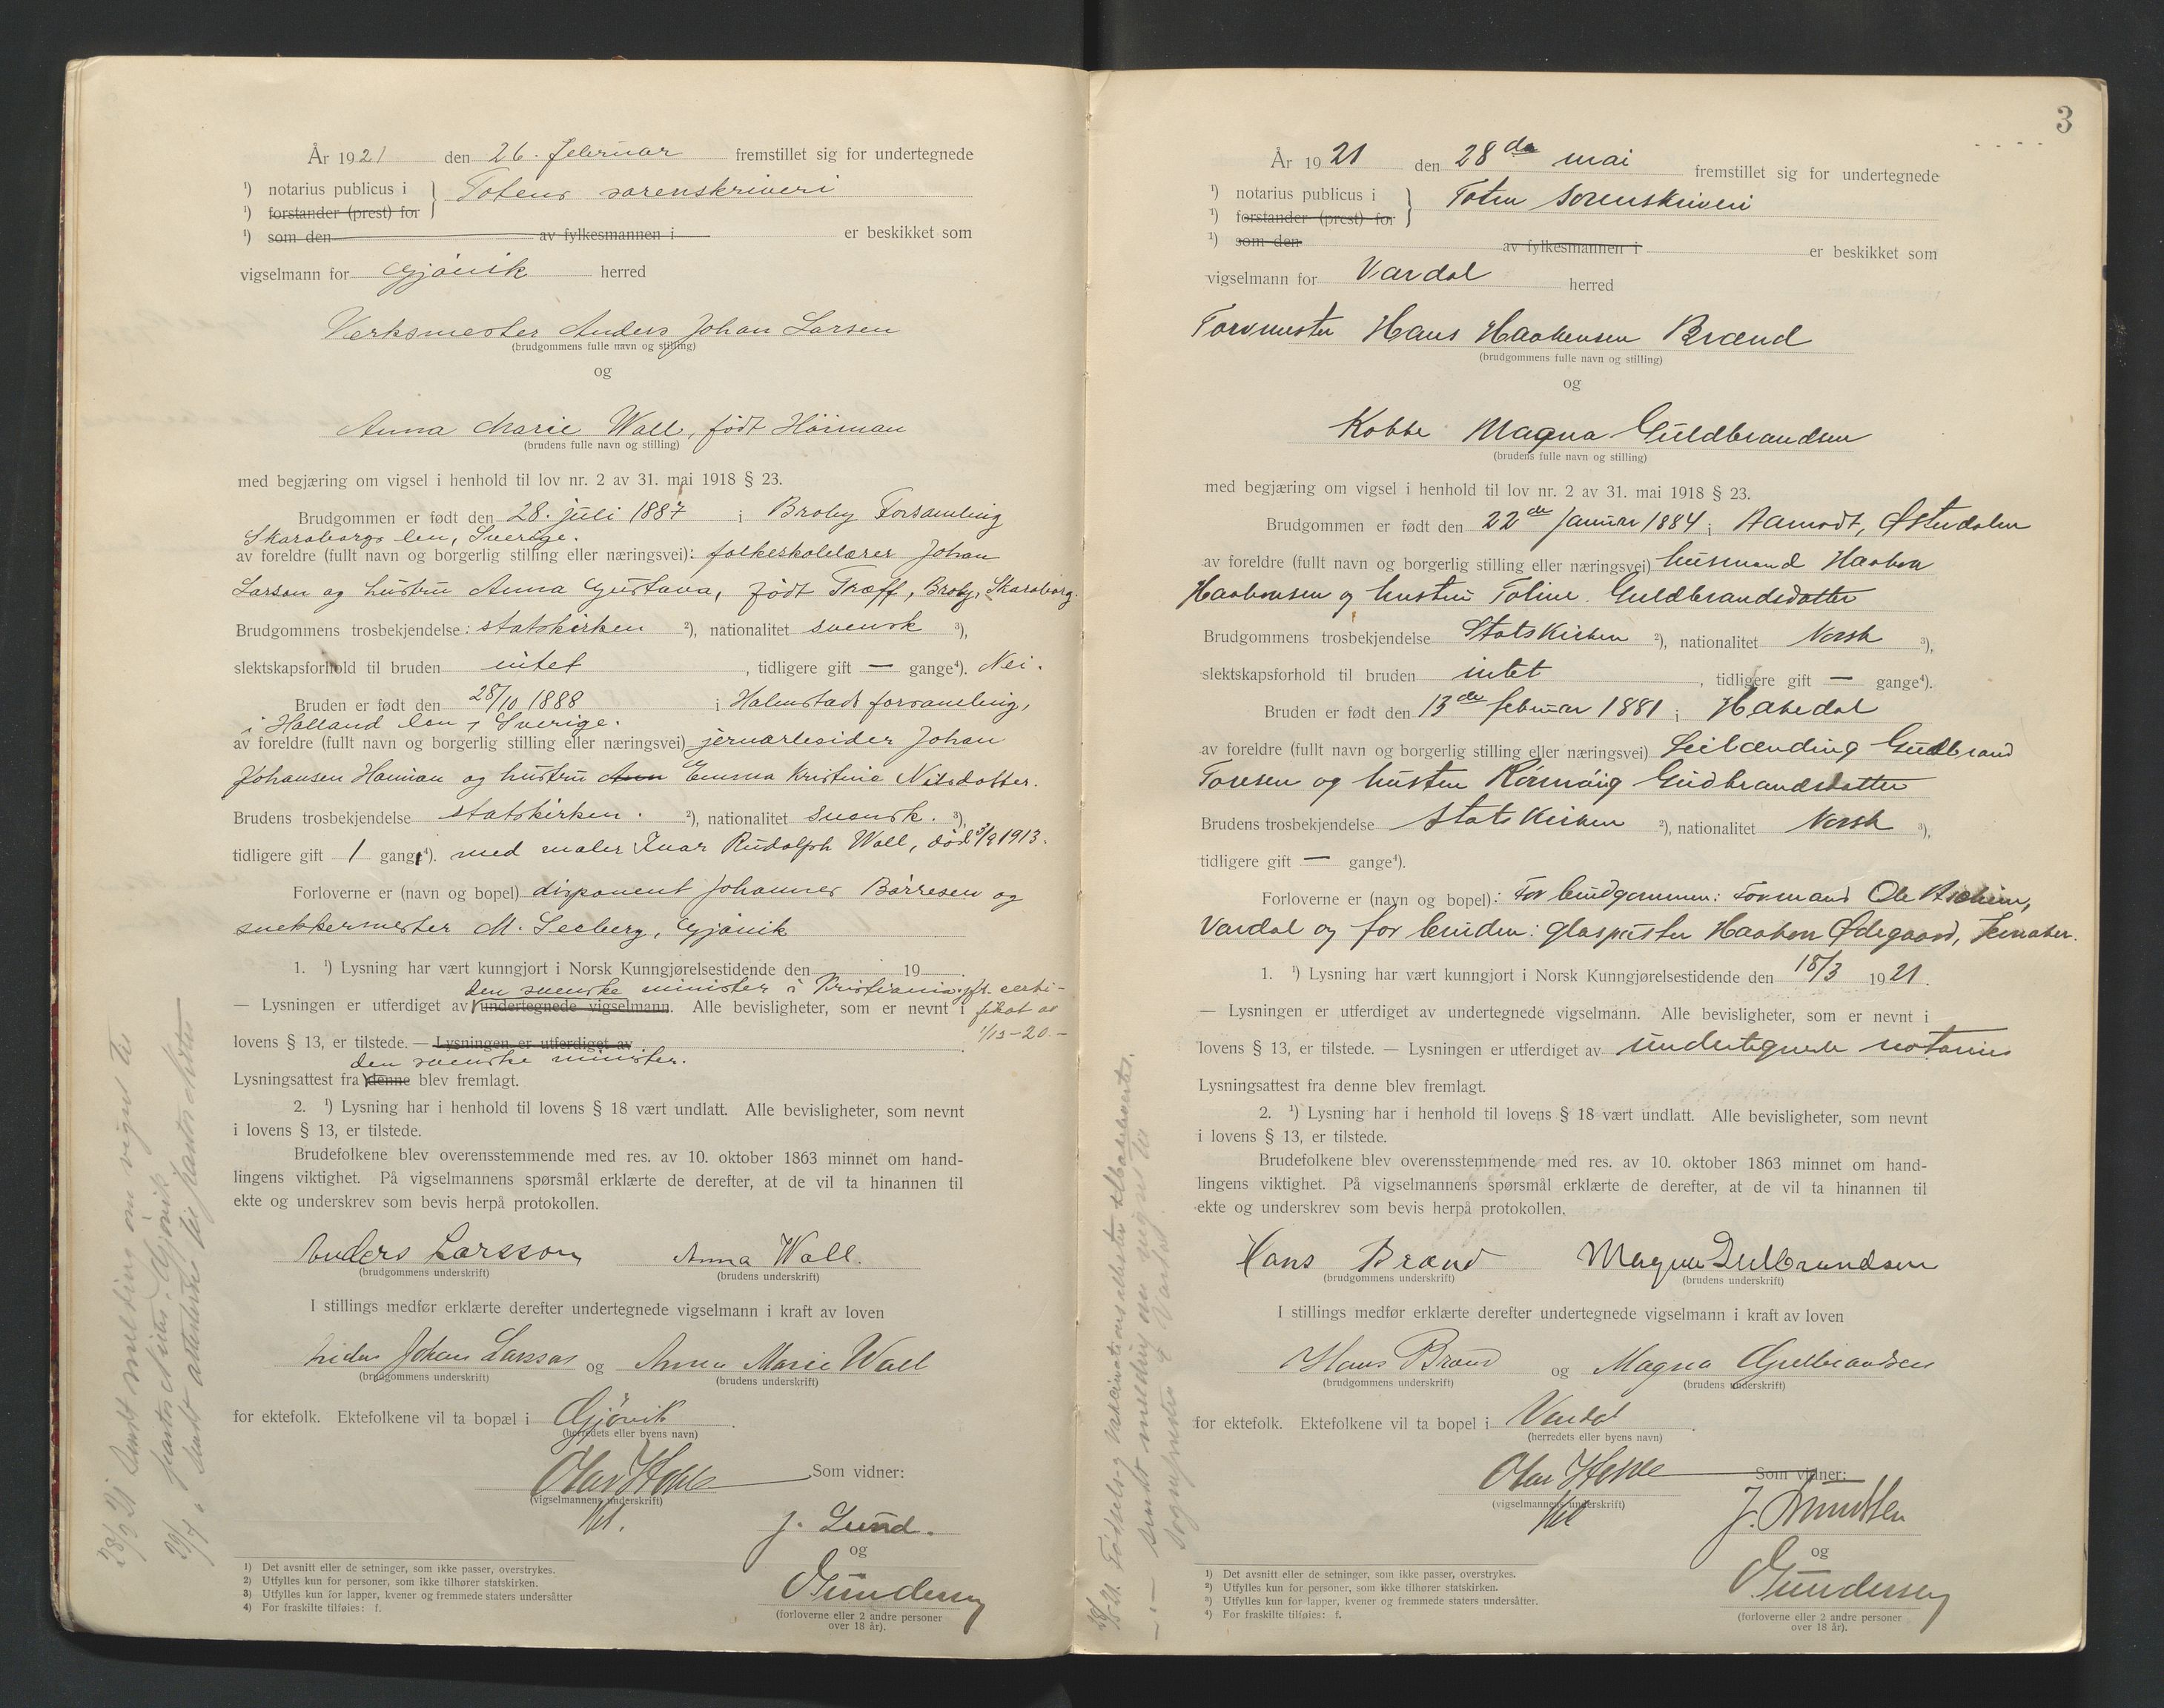 År 1921 den 26. februar fremstillet sig for undertegnede
¹) notarius publicus i } Totens sorenskriveri
¹) forstander (prest) for
¹) som den av fylkesmannen i er beskikket som
vigselmann for Gjövik herred
Verksmester Anders Johan Larsen
(brudgommens fulle navn og stilling)
og
Anna Marie Wall, født Hörman
(brudens fulle navn og stilling)
med begjæring om vigsel i henhold til lov nr. 2 av 31. mai 1918 § 23.
Brudgommen er født den 28. juli 1887 i Broby Forsamling
Skaraborgs len, Sverige.
av foreldre (fullt navn og borgerlig stilling eller næringsvei): folkeskolelærer Johan
Larson og hustru Anna Gustava, født Træff, Broby, Skaraborg.
Brudgommens trosbekjendelse: statskirken ²), nationalitet svensk ³),
slektskapsforhold til bruden intet , tidligere gift — gange⁴). Nei.
Bruden er født den 28/10 1888 i Halmstads forsamling,
i Halland len, Sverige.
av foreldre (fullt navn og borgerlig stilling eller næringsvei) jernarbeider Johan
Johansen Herman og hustru Ann Emma Kristine Nilsdotter.
Brudens trosbekjendelse statskirken. ²), nationalitet svensk. ³),
tidligere gift 1 gang⁴). med maler Ivar Rudolph Wall, död 3/9 1913.
Forloverne er (navn og bopel) disponent Johannes Börresen og
snekkermester M. Seeberg, Gjövik
1. ¹) Lysning har vært kunngjort i Norsk Kunngjørelsestidende den 19 .
den svenske minister i Kristiania, jfr. certi-
— Lysningen er utferdiget av undertegnede vigselmann. Alle bevisligheter, som er nevnt i fikat av
lovens § 13, er tilstede. — Lysningen er utferdiget av 1/12-20.-
den svenske minister.
Lysningsattest fra denne blev fremlagt.
2. ¹) Lysning har i henhold til lovens § 18 vært undlatt. Alle bevisligheter, som nevnt
i lovens § 13, er tilstede.
Brudefolkene blev overensstemmende med res. av 10. oktober 1863 minnet om hand-
lingens viktighet. På vigselmannens spørsmål erklærte de derefter, at de vil ta hinannen til
ekte og underskrev som bevis herpå protokollen.
Anders Larsson Anna Wall.
(brudgommens underskrift) (brudens underskrift)
I stillings medfør erklærte derefter undertegnede vigselmann i kraft av loven
Anders Johan Larsson og Anna Marie Wall
(brudgommens underskrift) (brudens underskrift)
for ektefolk. Ektefolkene vil ta bopæl i Gjövik .
(herredets eller byens navn)
Som vidner:
(vigselmannens underskrift)
J. Lund.
og
Gundersen
(forloverne eller 2 andre personer
over 18 år).
¹) Det avsnitt eller de setninger, som ikke passer, overstrykes.
²) Utfylles kun for personer, som ikke tilhører statskirken.
³) Utfylles kun for lapper, kvener og fremmede staters undersåtter
⁴) For fraskilte tilføies: f.
28/2 21 Sendt melding om vigsel til
3
År 1921 den 28de mai fremstillet sig for undertegnede
¹) notarius publicus i } Toten Sorenskriveri
¹) forstander (prest) for
¹) som den av fylkesmannen i er beskikket som
vigselmann for Vardal herred
Torvmester Hans Haakensen Brænd
(brudgommens fulle navn og stilling)
og
Kokke Magna Guldbrandsen
(brudens fulle navn og stilling)
med begjæring om vigsel i henhold til lov nr. 2 av 31. mai 1918 § 23.
Brudgommen er født den 22de januar 1884 i Aamodt, Østerdalen
av foreldre (fullt navn og borgerlig stilling eller næringsvei) husmand Haakon
Haakonsen og hustru Toline Guldbrandsdatter
Brudgommens trosbekjendelse Statskirken ²), nationalitet Norsk ³),
slektskapsforhold til bruden intet , tidligere gift — gange⁴).
Bruden er født den 13de februar 1881 i Hakedal
av foreldre (fullt navn og borgerlig stilling eller næringsvei) Leilænding Gudbrand
Toresen og hustru Gudbrandsdatter
Brudens trosbekjendelse Statskirken ²), nationalitet Norsk ³),
tidligere gift — gange⁴).
Forloverne er (navn og bopel): For brudgommen: Formand Ole
Vardal og for bruden: glaspuster Haakon Ødegaard,
1. ¹) Lysning har vært kunngjort i Norsk Kunngjørelsestidende den 18/3 1921.
— Lysningen er utferdiget av undertegnede vigselmann. Alle bevisligheter, som er nevnt i
lovens § 13, er tilstede. — Lysningen er utferdiget av undertegnede notarius
Lysningsattest fra denne blev fremlagt.
2. ¹) Lysning har i henhold til lovens § 18 vært undlatt. Alle bevisligheter, som nevnt
i lovens § 13, er tilstede.
Brudefolkene blev overensstemmende med res. av 10. oktober 1863 minnet om hand-
lingens viktighet. På vigselmannens spørsmål erklærte de derefter, at de vil ta hinannen til
ekte og underskrev som bevis herpå protokollen.
Hans Brænd Magna Gulbrandsen
(brudgommens underskrift) (brudens underskrift)
I stillings medfør erklærte derefter undertegnede vigselmann i kraft av loven
Hans Brænd og Magna Gulbrandsen
(brudgommens underskrift) (brudens underskrift)
for ektefolk. Ektefolkene vil ta bopel i Vardal .
(herredets eller byens navn)
Som vidner:
(vigselmannens underskrift)
J. Knudsen
og
Gundersen
(forloverne eller 2 andre personer
over 18 år).
¹) Det avsnitt eller de setninger, som ikke passer, overstrykes.
²) Utfylles kun for personer, som ikke tilhører statskirken.
³) Utfylles kun for lapper, kvener og fremmede staters undersåtter.
⁴) For fraskilte tilføies: f.
sendt melding om vigsel til
sogneprest i Vardal